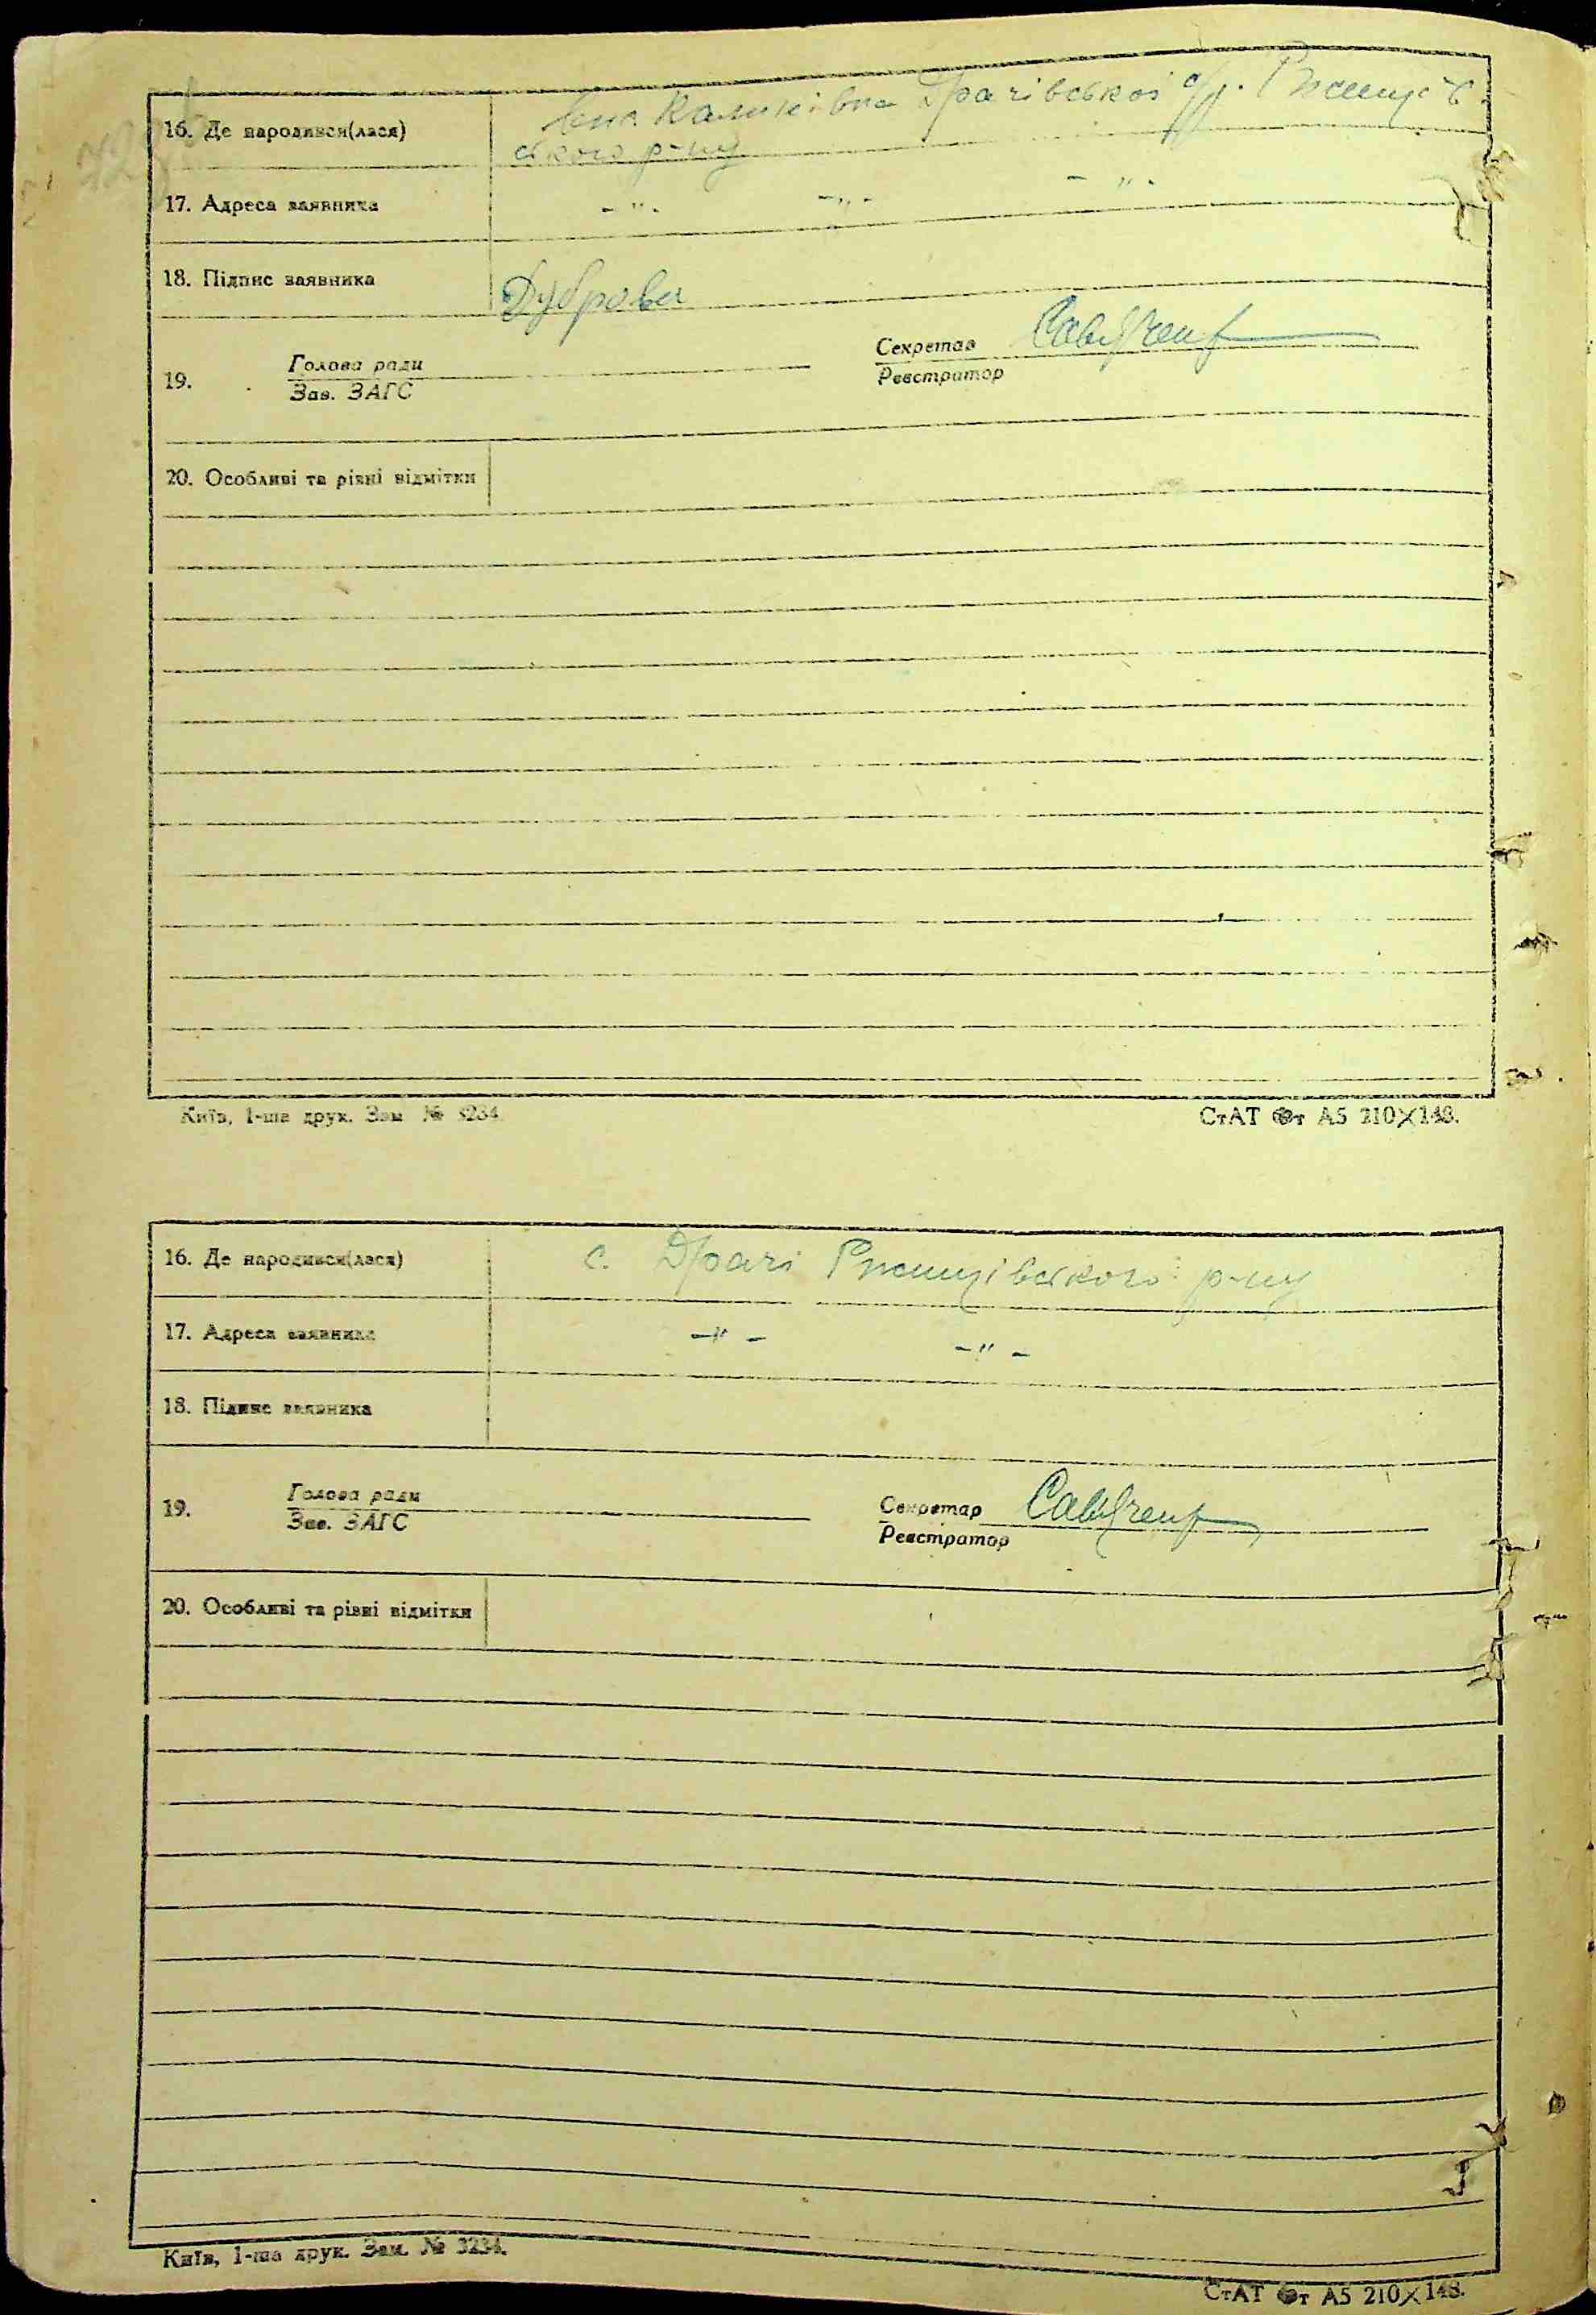 16. Де народився(лася) Калинівка Драчівської с/р. Ржищів
ського р-ну
17. Адреса заявника - " - - " - - " -
18. Підпис заявника Дуброва
19. Голова ради Секретар
Зав. ЗАГС Реєстратор
20. Особливі та різні відмітки
Київ, 1-ша друк. Зам. № 3234.
СтАТ Фт А5 210×148.
16. Де народився(лася) с. Драчі Ржищівського р-ну
17. Адреса заявника - " - - " -
18. Підпис заявника
19. Голова ради Секретар
Зав. ЗАГС Реєстратор
20. Особливі та різні відмітки
Київ, 1-ша друк. Зам. № 3234.
СтАТ Фт А5 210×148.